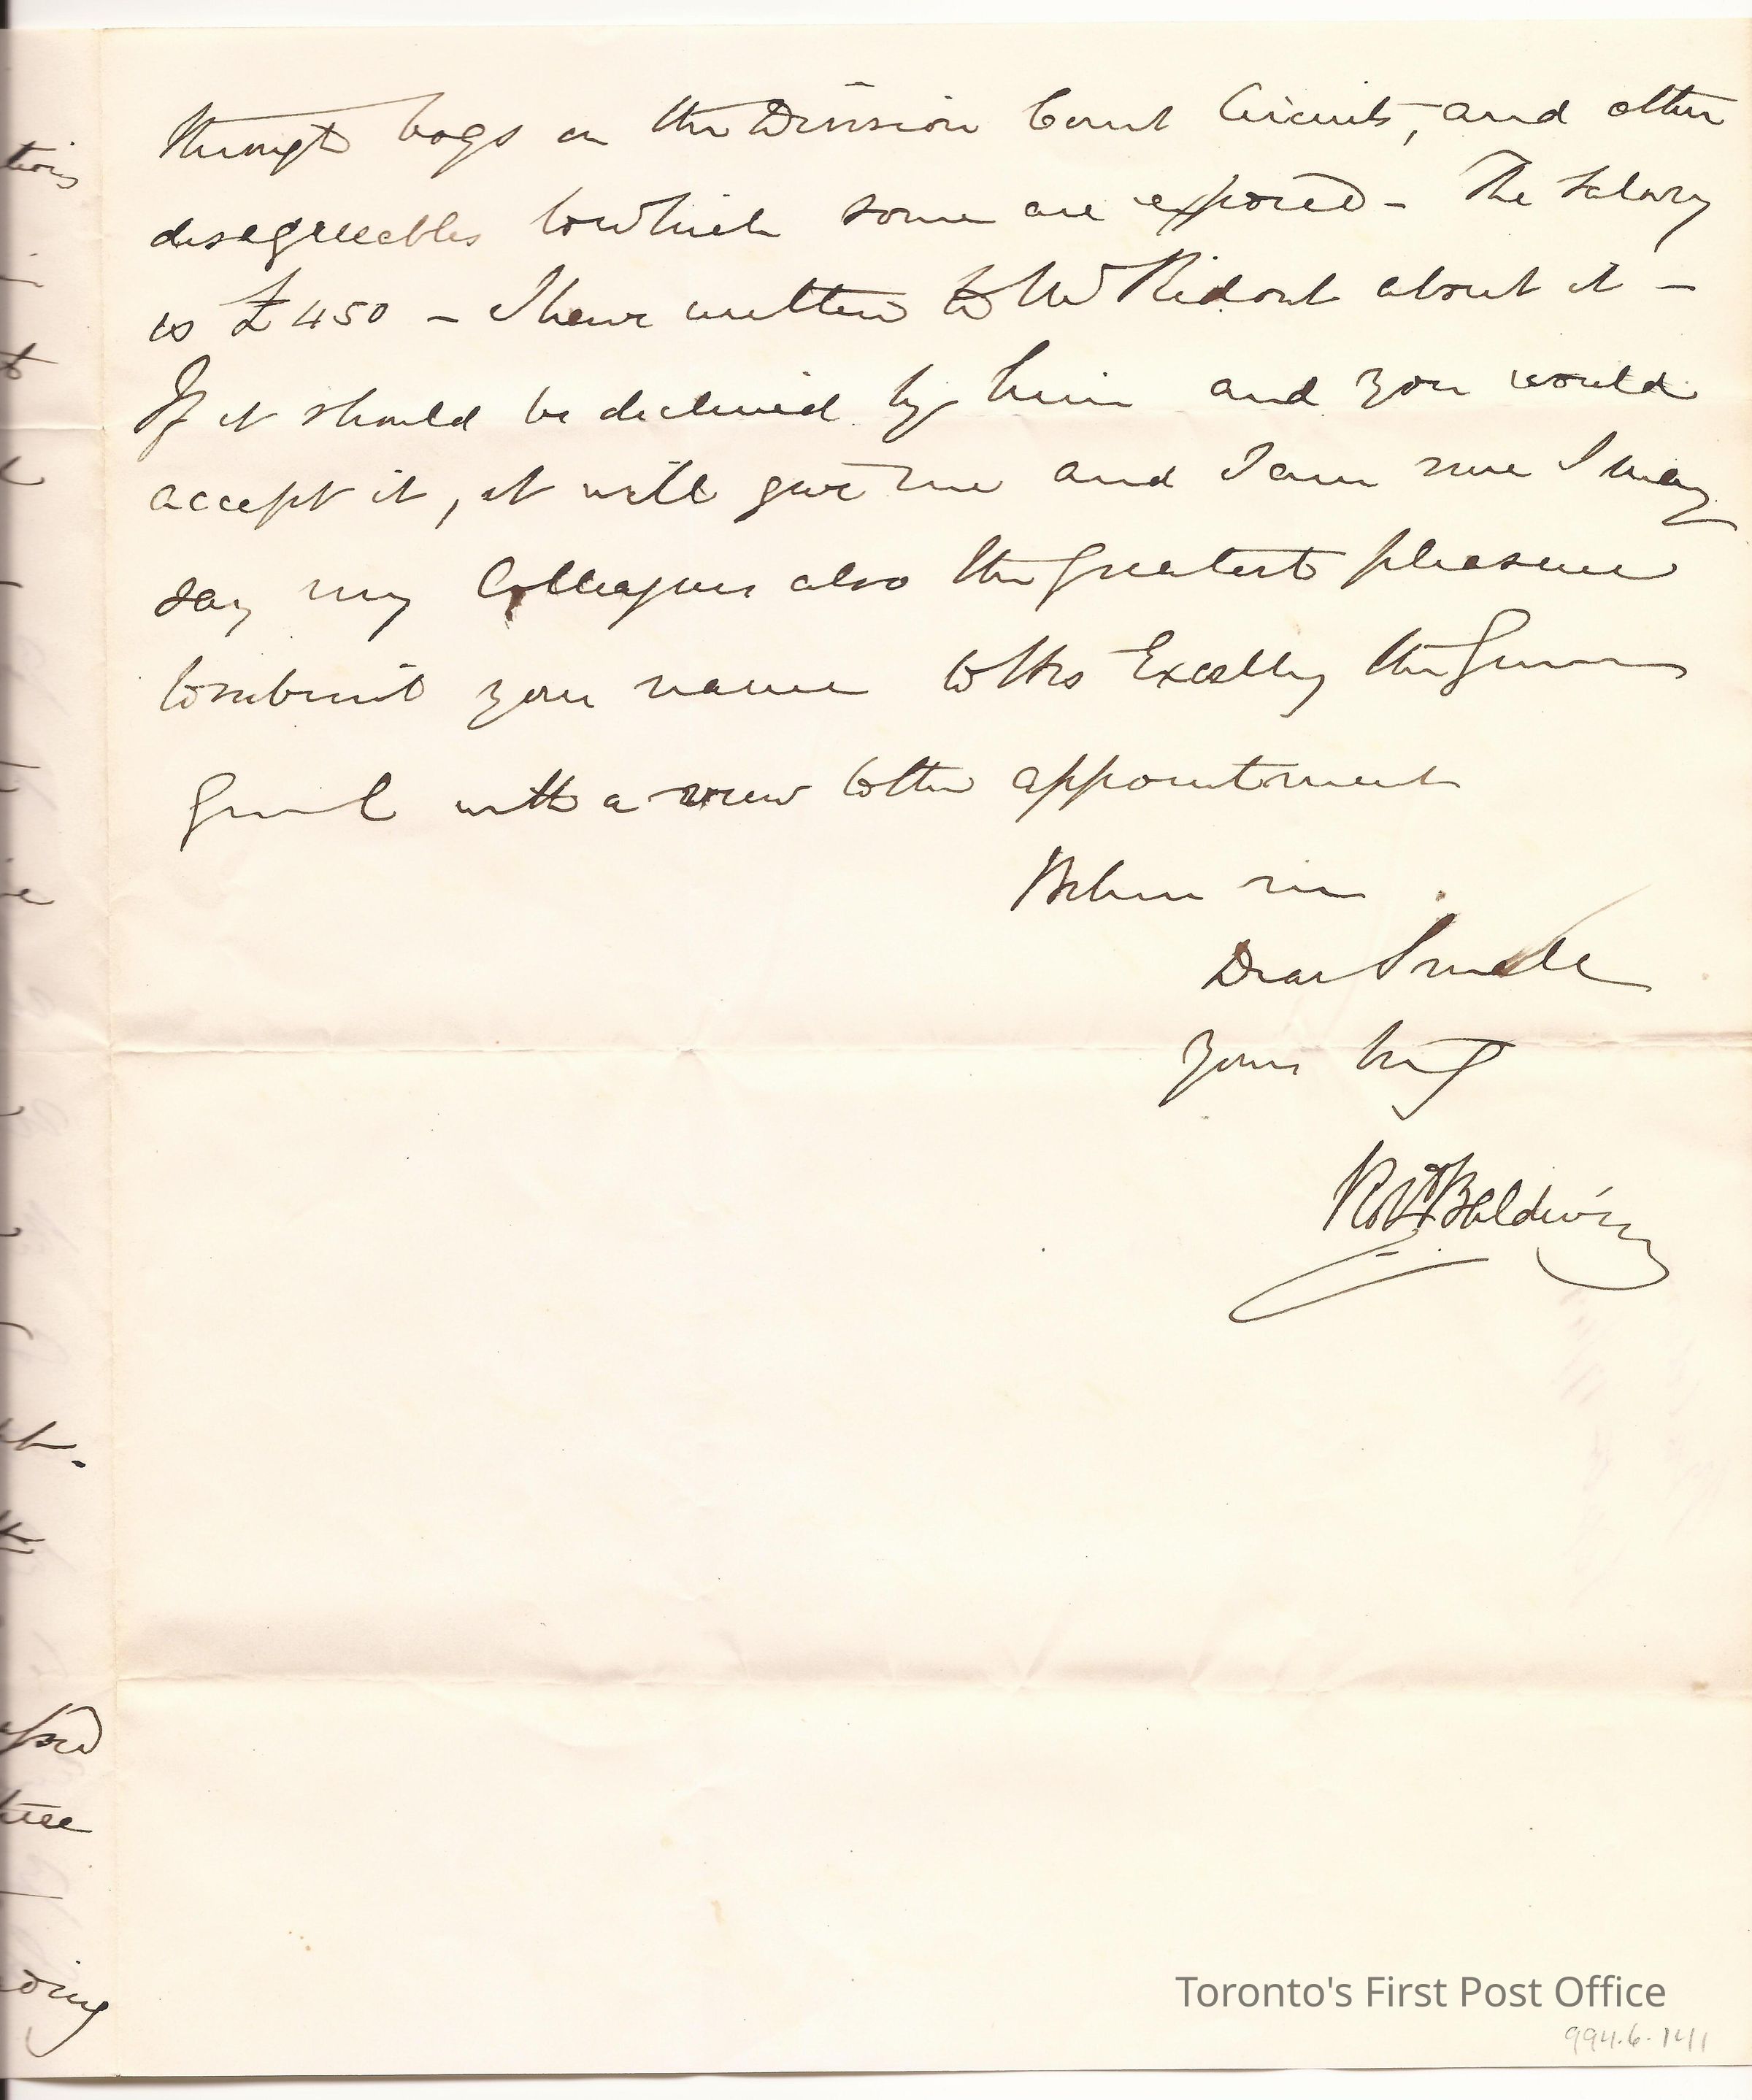 through bogs on the Division Court Circuits, and other
disagreeables to which some are exposed – The Salary
is £450 – I have written to Mr Ridout about it –
If it should be declined by him and you would
accept it, it will give me and I am sure I may
say my Colleagues also the greatest pleasure
to submit your name to His Excelly the Governor
General with a view to the appointment
Believe me
Dear Small
Yours truly
Robt Baldwin
Toronto's First Post Office
994.6.141